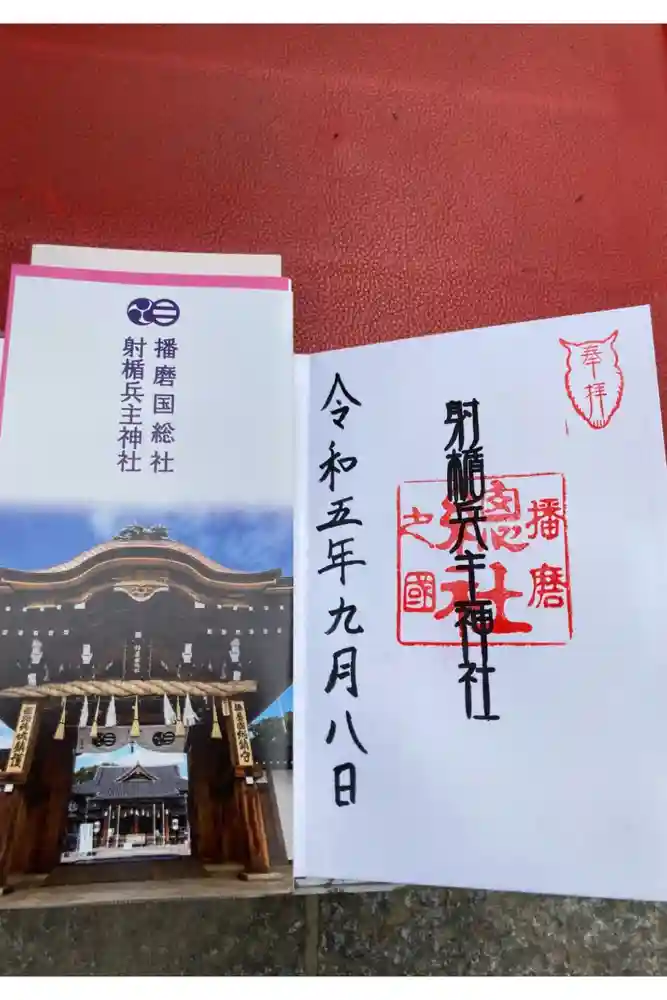 播磨国総社
射楯兵主神社
奉拝
射楯兵主神社
播磨
總社
之國
令和五年九月八日